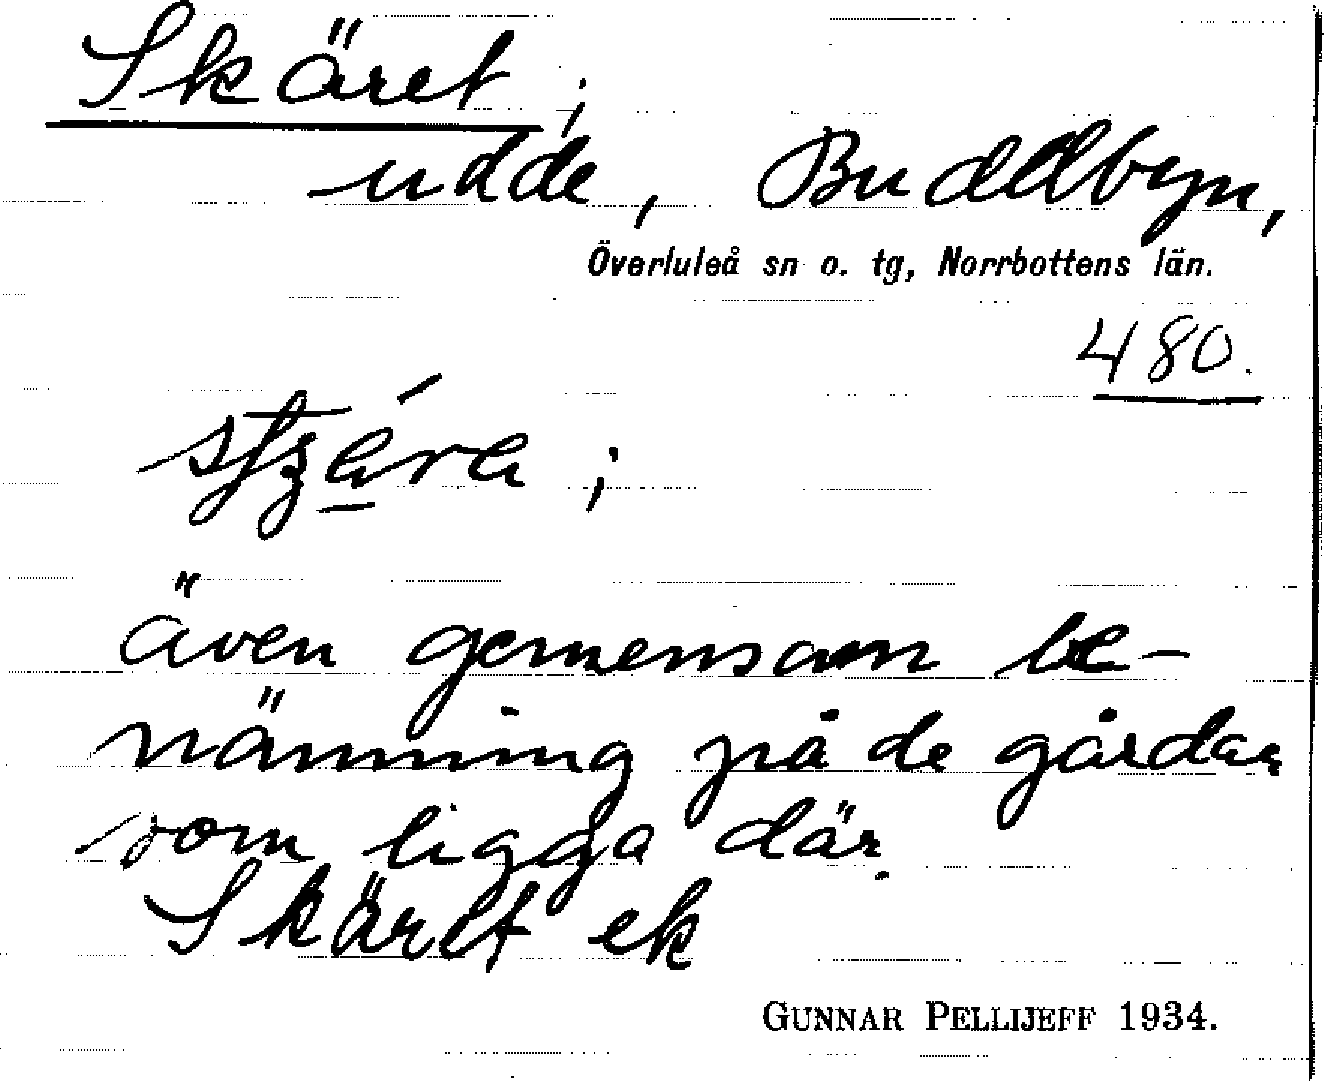 Skäret ;
udde, Buddbyn,
Överluleå sn o. tg, Norrbottens län.
480.
även gemensam be-
nämning på de gårdar
som ligga där.
Skäret ek
GUNNAR PELLIJEFF 1934.